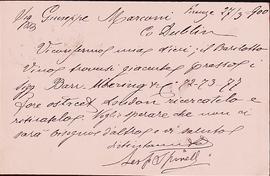 Sig Giuseppe Marconi Firenze 27/3/900
Co Dublin
Vi confermo una di ieri, il Barilotto
Vino trovasi giacente presso i
Sigg Barr Moering & Co 72-73-77
Fore Street London ricercatelo e
ritiratelo. Voglio sperare che non vi
sarà bisogno d'altro e vi saluto
Spinelli